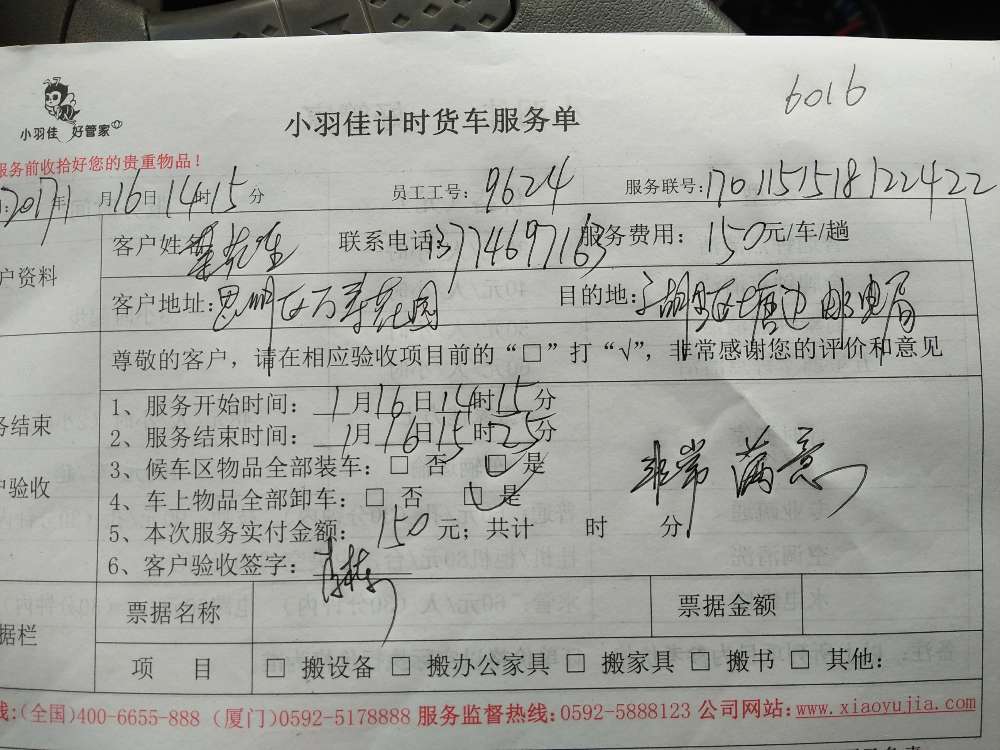 6016
小羽佳 好管家
小羽佳计时货车服务单
服务前收拾好您的贵重物品!
2017年1月16日14时15分 员工工号: 9624 服务联号: 1701151518122422
户资料
客户姓名 先生 联系电话: 13774697163 服务费用: 150元/车/趟
客户地址: 思明区万寿花园 目的地: 湖 塘边邮电局
尊敬的客户, 请在相应验收项目前的“□”打“√”, 非常感谢您的评价和意见
务结束
户验收
1、服务开始时间: 1月16日14时15分
2、服务结束时间: 1月16日15时25分
3、候车区物品全部装车: □ 否 ☑ 是
4、车上物品全部卸车: □ 否 ☑ 是
非常满意
5、本次服务实付金额: 150元; 共计 时 分.
6、客户验收签字:
据栏
票据名称 票据金额
项 目 □ 搬设备 □ 搬办公家具 □ 搬家具 □ 搬书 □ 其他:
线:(全国)400-6655-888 (厦门)0592-5178888 服务监督热线:0592-5888123 公司网站:www.xiaoyujia.com